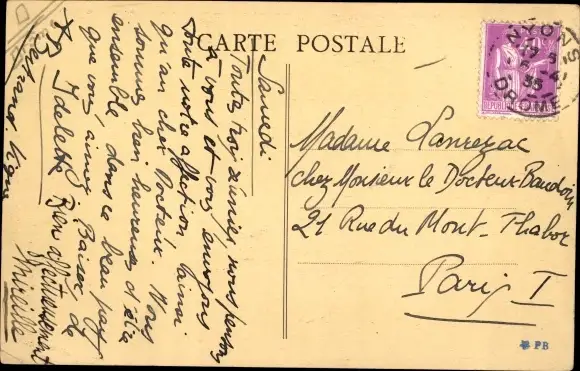 CARTE POSTALE
Samedi
Toutes trois réunies nous pensons
à vous et vous envoyons
toute notre affection ainsi
qu'au cher Docteur. Nous
sommes bien heureuses d'être
ensemble dans ce beau pays
que vous aimez. Baiser de
Idelette
Bien affectueusement
Mireille
NYONS
35
DROME
Madame Lanrezac
chez Monsieur le Docteur Baudouin
21 Rue du Mont-Thabor
Paris I
PB